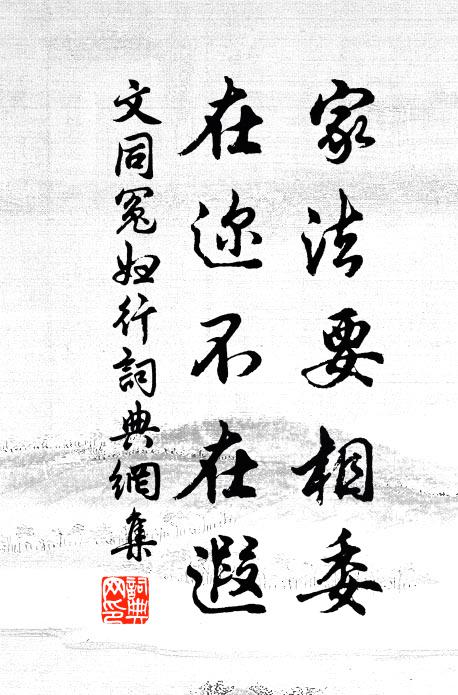 家法要相委
在迩不在遐
文同冤妇行詞典網集
詞典网印